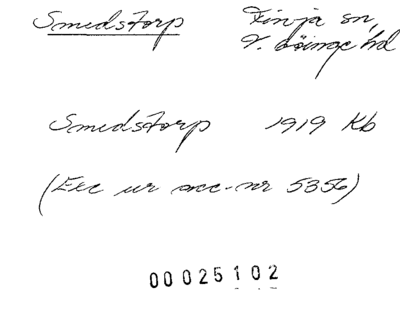 Smedstorp Finja sn,
V. Göinge hd
Smedstorp 1919 Kb
(Exc ur acc-nr 5356)
00025102